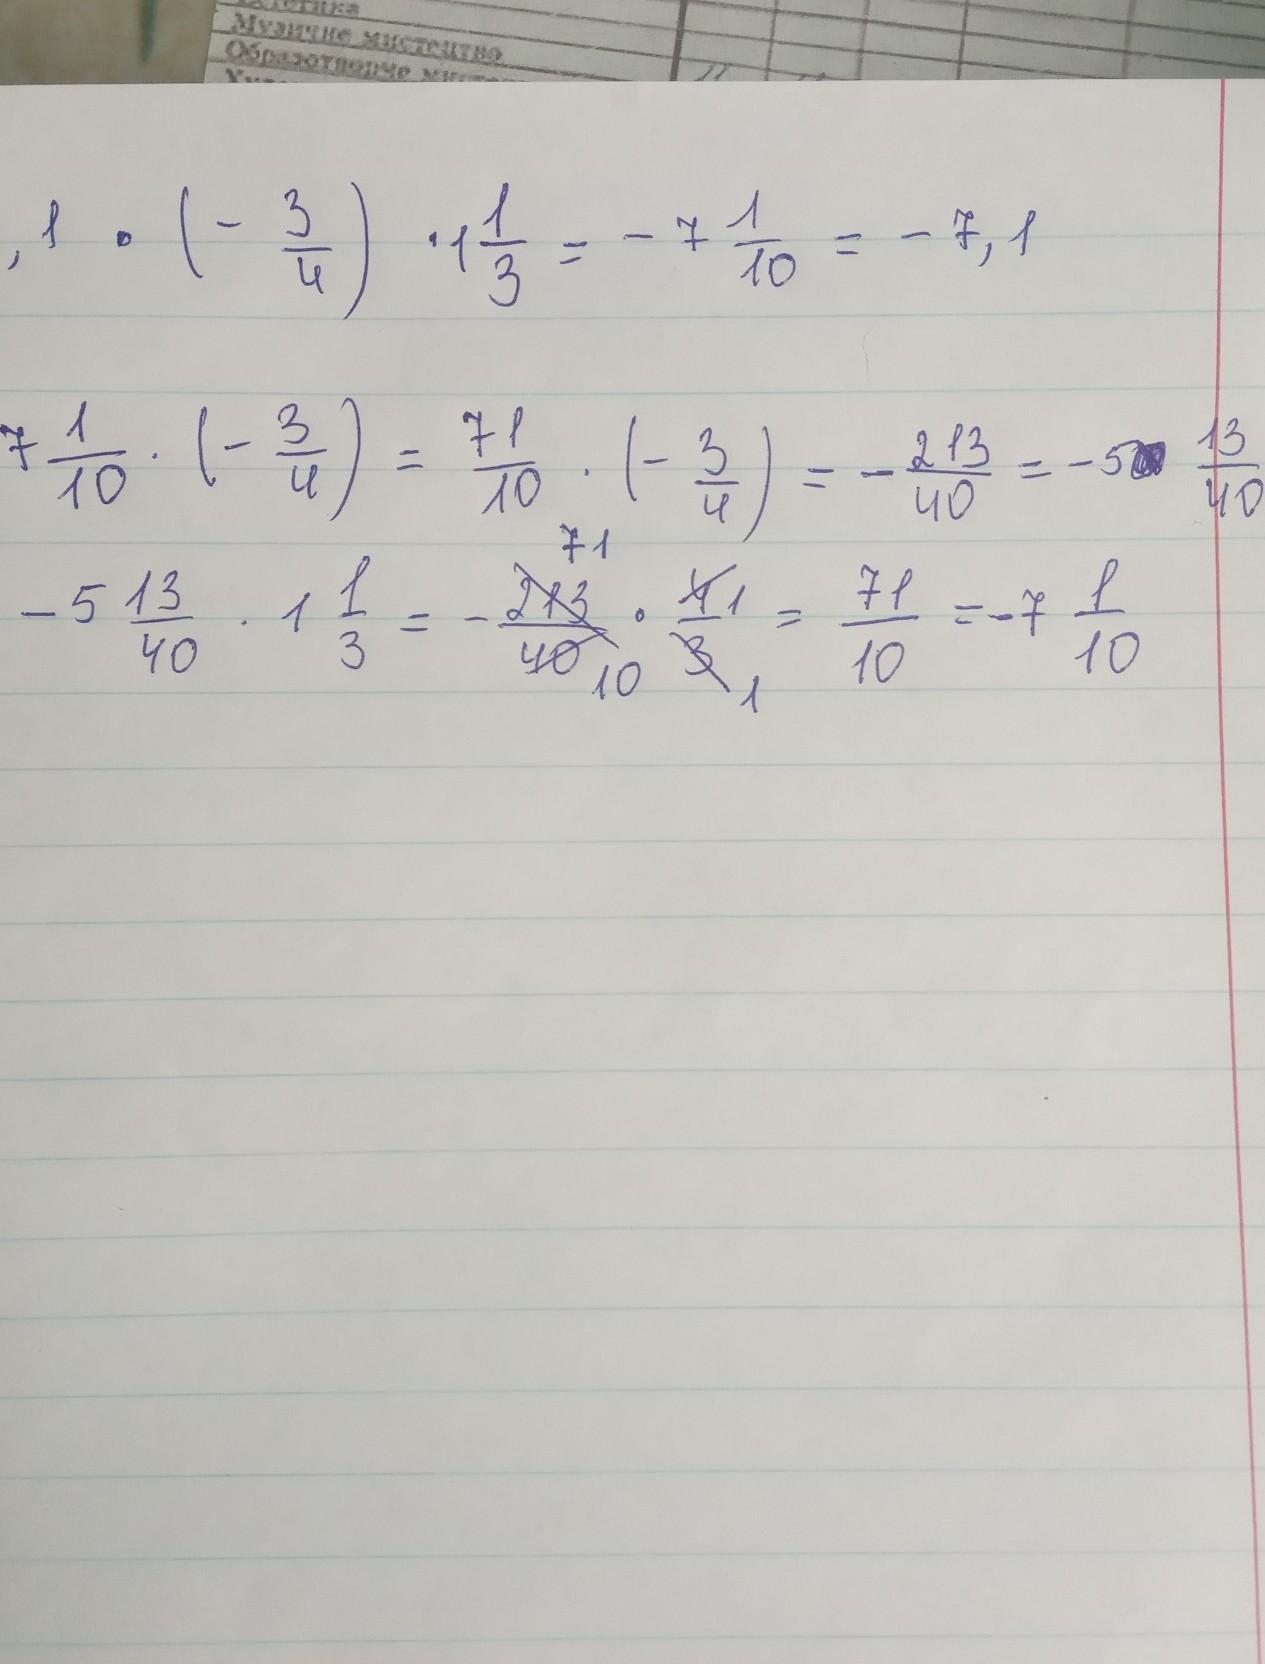 Музичне мистецтво
Образотворче
,1 · (- 3/4) · 1 1/3 = - 7 1/10 = - 7,1
7 1/10 · (- 3/4) = 71/10 · (- 3/4) = - 213/40 = - 5 13/40
71
- 5 13/40 · 1 1/3 = - 213/40 · 4/3 1 = 71/10 = - 7 1/10
10 1